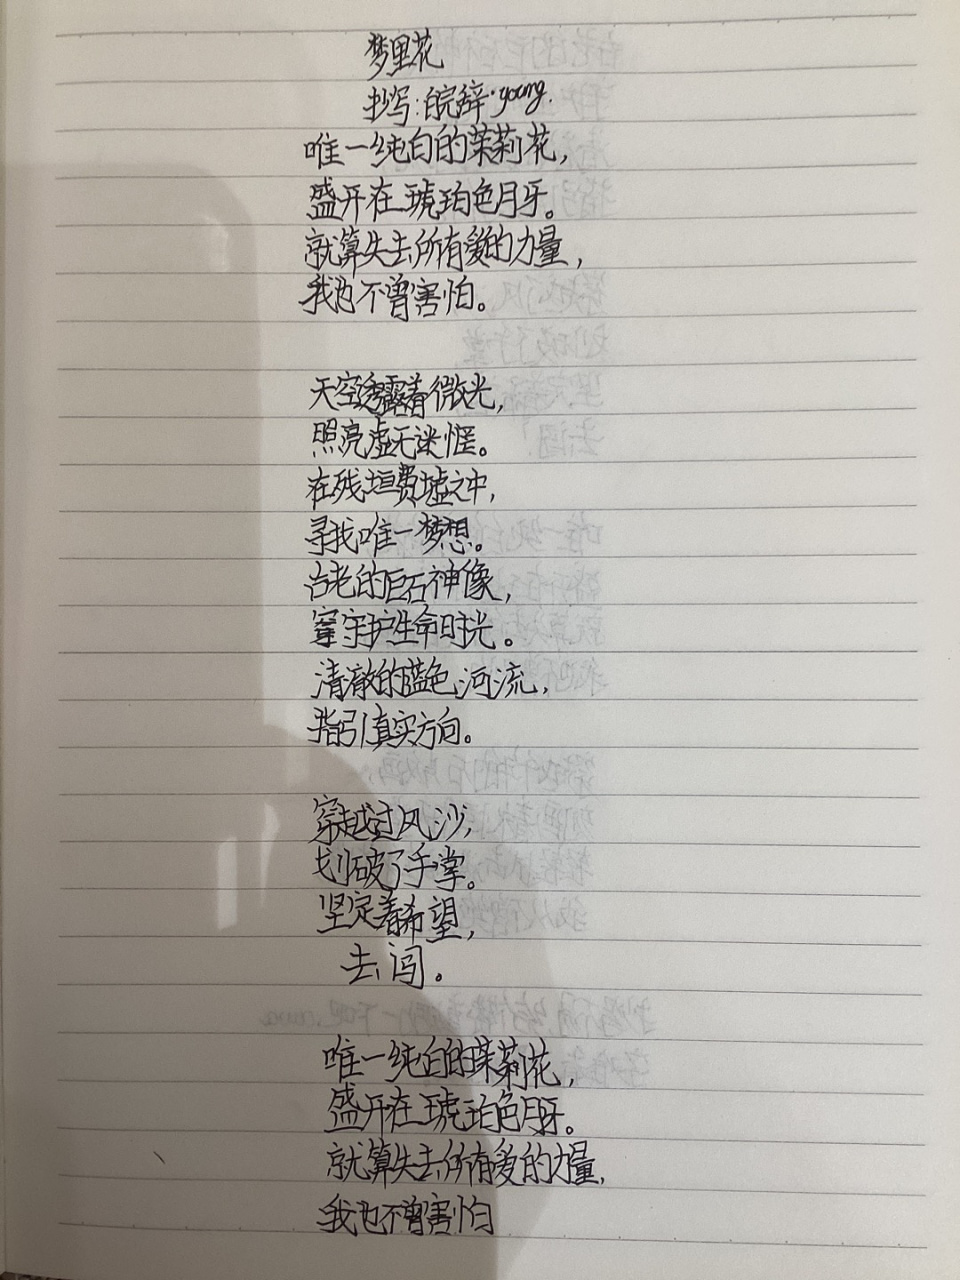 梦里花
抄写:皖辞·young.
唯一纯白的茉莉花,
盛开在琥珀色月牙。
就算失去所有爱的力量,
我也不曾害怕。
天空透露着微光,
照亮虚无迷惘。
在残垣费墟之中,
寻找唯一梦想。
古老的巨石神像,
守护生命时光。
清澈的蓝色河流,
指引真实方向。
穿越过风沙,
划破了手掌。
坚定着希望,
去闯。
唯一纯白的茉莉花,
盛开在琥珀色月牙。
就算失去所有爱的力量,
我也不曾害怕